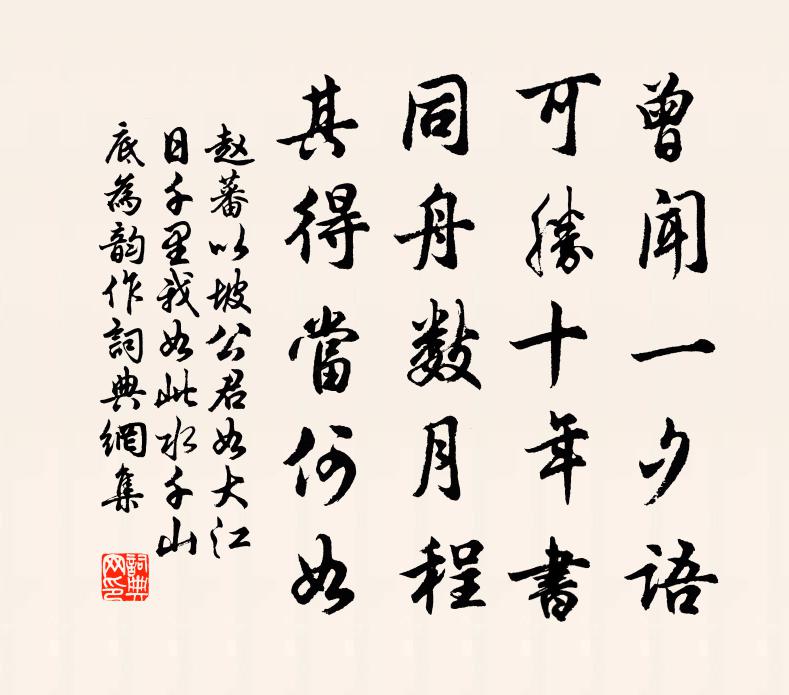 曾聞一夕語
可勝十年書
同舟数月程
其得當何如
赵蕃以坡公君如大江
日千里我如此水千山
底為韵作詞典網集
詞典网印